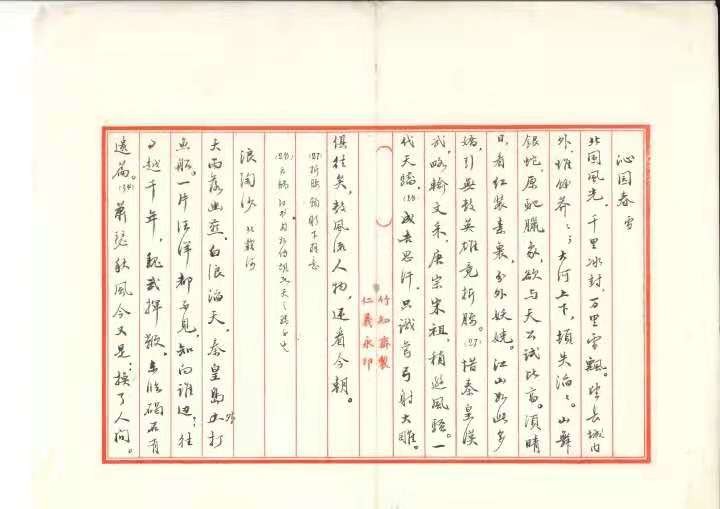 沁园春 雪
北国风光，千里冰封，万里雪飘。望长城内
外，惟余莽：；大河上下，顿失滔：。山舞
银蛇，原驰腊象，欲与天公试比高。须晴
日，看红装素裹，分外妖娆。江山如此多
娇，引无数英雄竞折腰。(27)惜秦皇汉
武，略输文采，唐宗宋祖，稍逊风骚。一
代天骄，(28)成吉思汗，只识弯弓射大雕。
竹知斋制
仁义永印
俱往矣，数风流人物，还看今朝。
(27)折腰
浪淘沙 北戴河
大雨落幽燕，白浪滔天，秦皇岛外打
鱼船。一片汪洋都不见，知向谁边？往
事越千年，魏武挥鞭，东临碣石有
遗篇。(34)萧瑟秋风今又是，换了人间。